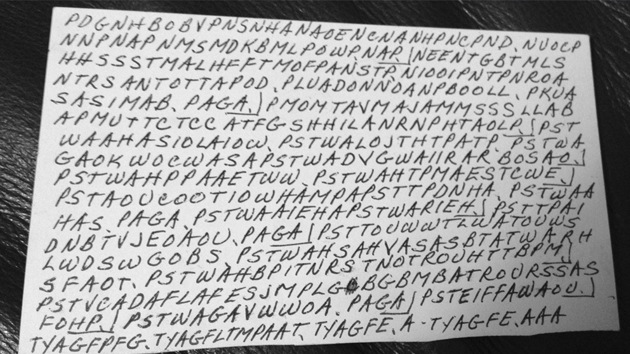 PDGNHBOBVPNSNHANAOENCNANHPNCPND. NUOCP
NNPNAPNMSMDKBMLPOWP. NAP.| NEENTGBTMLS
HHSSSTMALHFFTMOFPANSTP. NIOOIPNTPNROA
NTRSANTOTTAPOD. PLUADONNOANPBOOLL. PKUA
SASIMAB. PAGA.| PMOMTAVMAJAMMSSSLLAB
APMUTTCTCC ATFGSHHILANRNPHTAOLP.| PST
WAAHASIOLAIOW. PSTWALOJTHTPATP. PSTWA
GAOKWOCWASAPSTWADVGWAIIRAR. BOSAO.|
PSTWAHPPAAETWW. PSTWAHTPMAESTCWE.|
PSTAOUCOOTIOWHAMPAPSTTPDNHA. PSTWAA
HAS. PAGA. PSTWAAIEHAPSTWARIEH.| PSTTPAI
DNBTVJEOAOU. PAGA.| PSTTOUWWTLWATOUWS
LWDSWGOBS. PSTWAHSAHVASASBTATWARH
SFAOT. PSTWAHBPITNRS. TNOTROUHTTBPM.|
PSTVCADAFLAFESJMPLG BGBMBATROURSSAS
FOHP.| PSTWAGAVWWOA. PAGA.| PSTEIFFAWAOU.|
TYAGFPFG. TYAGFLTMPAAT. TYAGFE. A-TYAGFE. AAA